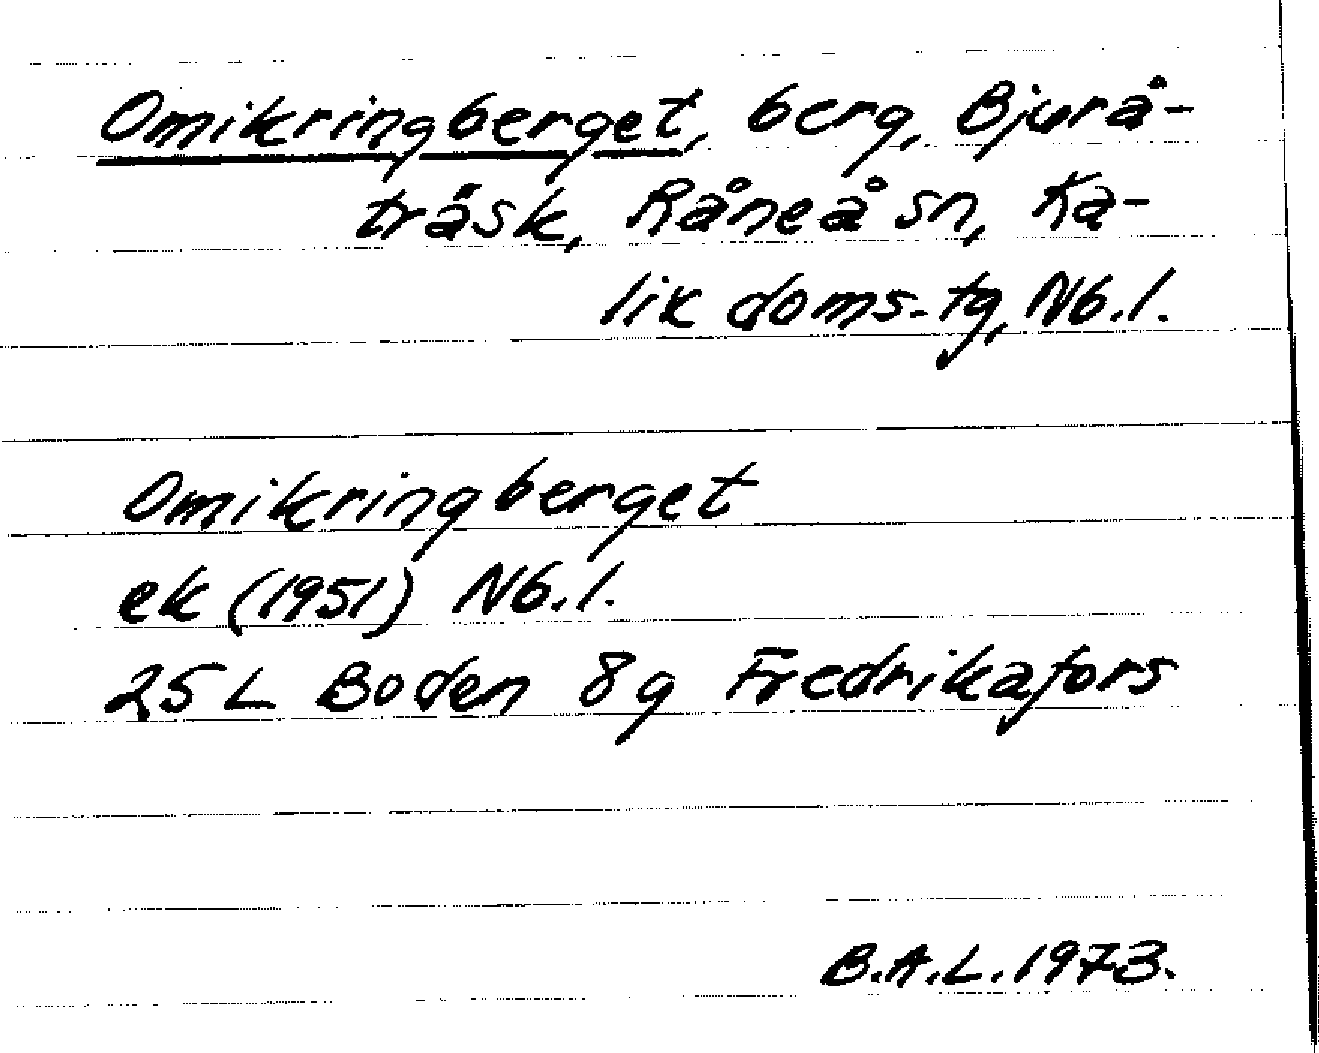 Omikringberget, berg, Bjurå-
träsk, Råneå sn, Ka-
lix doms-tg, Nb.l.
Omikringberget
ek (1951) Nb.l.
25 L Boden 8g Fredrikafors
B.A.L. 1973.